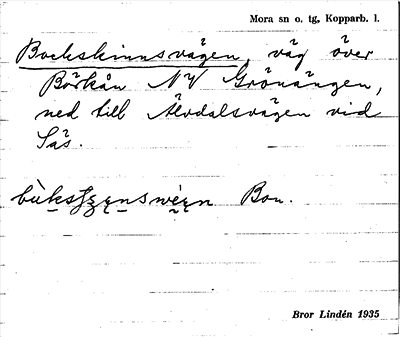 Mora sn o. tg, Kopparb. l.
Bockskinnsvägen, väg över
Börkån NV Grönängen,
ned till Älvdalsvägen vid
Säs.
Bon.
Bror Lindén 1935